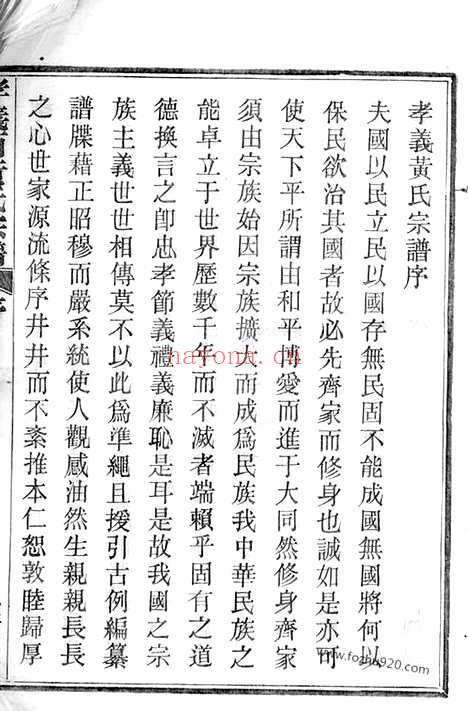 孝義黃氏宗譜序
夫國以民立民以國存無民固不能成國無國將何以
保民欲治其國者故必先齊家而修身也誠如是亦可
使天下平所謂由和平博愛而進于大同然修身齊家
須由宗族始因宗族擴大而成爲民族我中華民族之
能卓立于世界歷數千年而不滅者端賴乎固有之道
德換言之卽忠孝節義禮義廉恥是耳是故我國之宗
族主義世世相傳莫不以此爲準繩且援引古例編纂
譜牒藉正昭穆而嚴系統使人觀感油然生親親長長
之心世家源流條序井井而不紊推本仁恕敦睦歸厚
hayona.cn
www.fozhu920.com